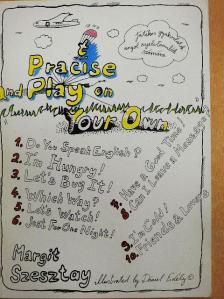 Játékos gyakorlatok
angol nyelvtanulók
számára
Practise
and Play on
Your Own
1. Do You Speak English?
2. I'm Hungry!
3. Let's Buy It!
4. Which Way?
5. Let's Watch!
6. Just For One Night!
7. Have A Good Time!
8. Can I Leave a Message?
9. I'm Cold!
10. Friends & Lovers
Margit
Szesztay
Illustrated by Dániel Erdély ©